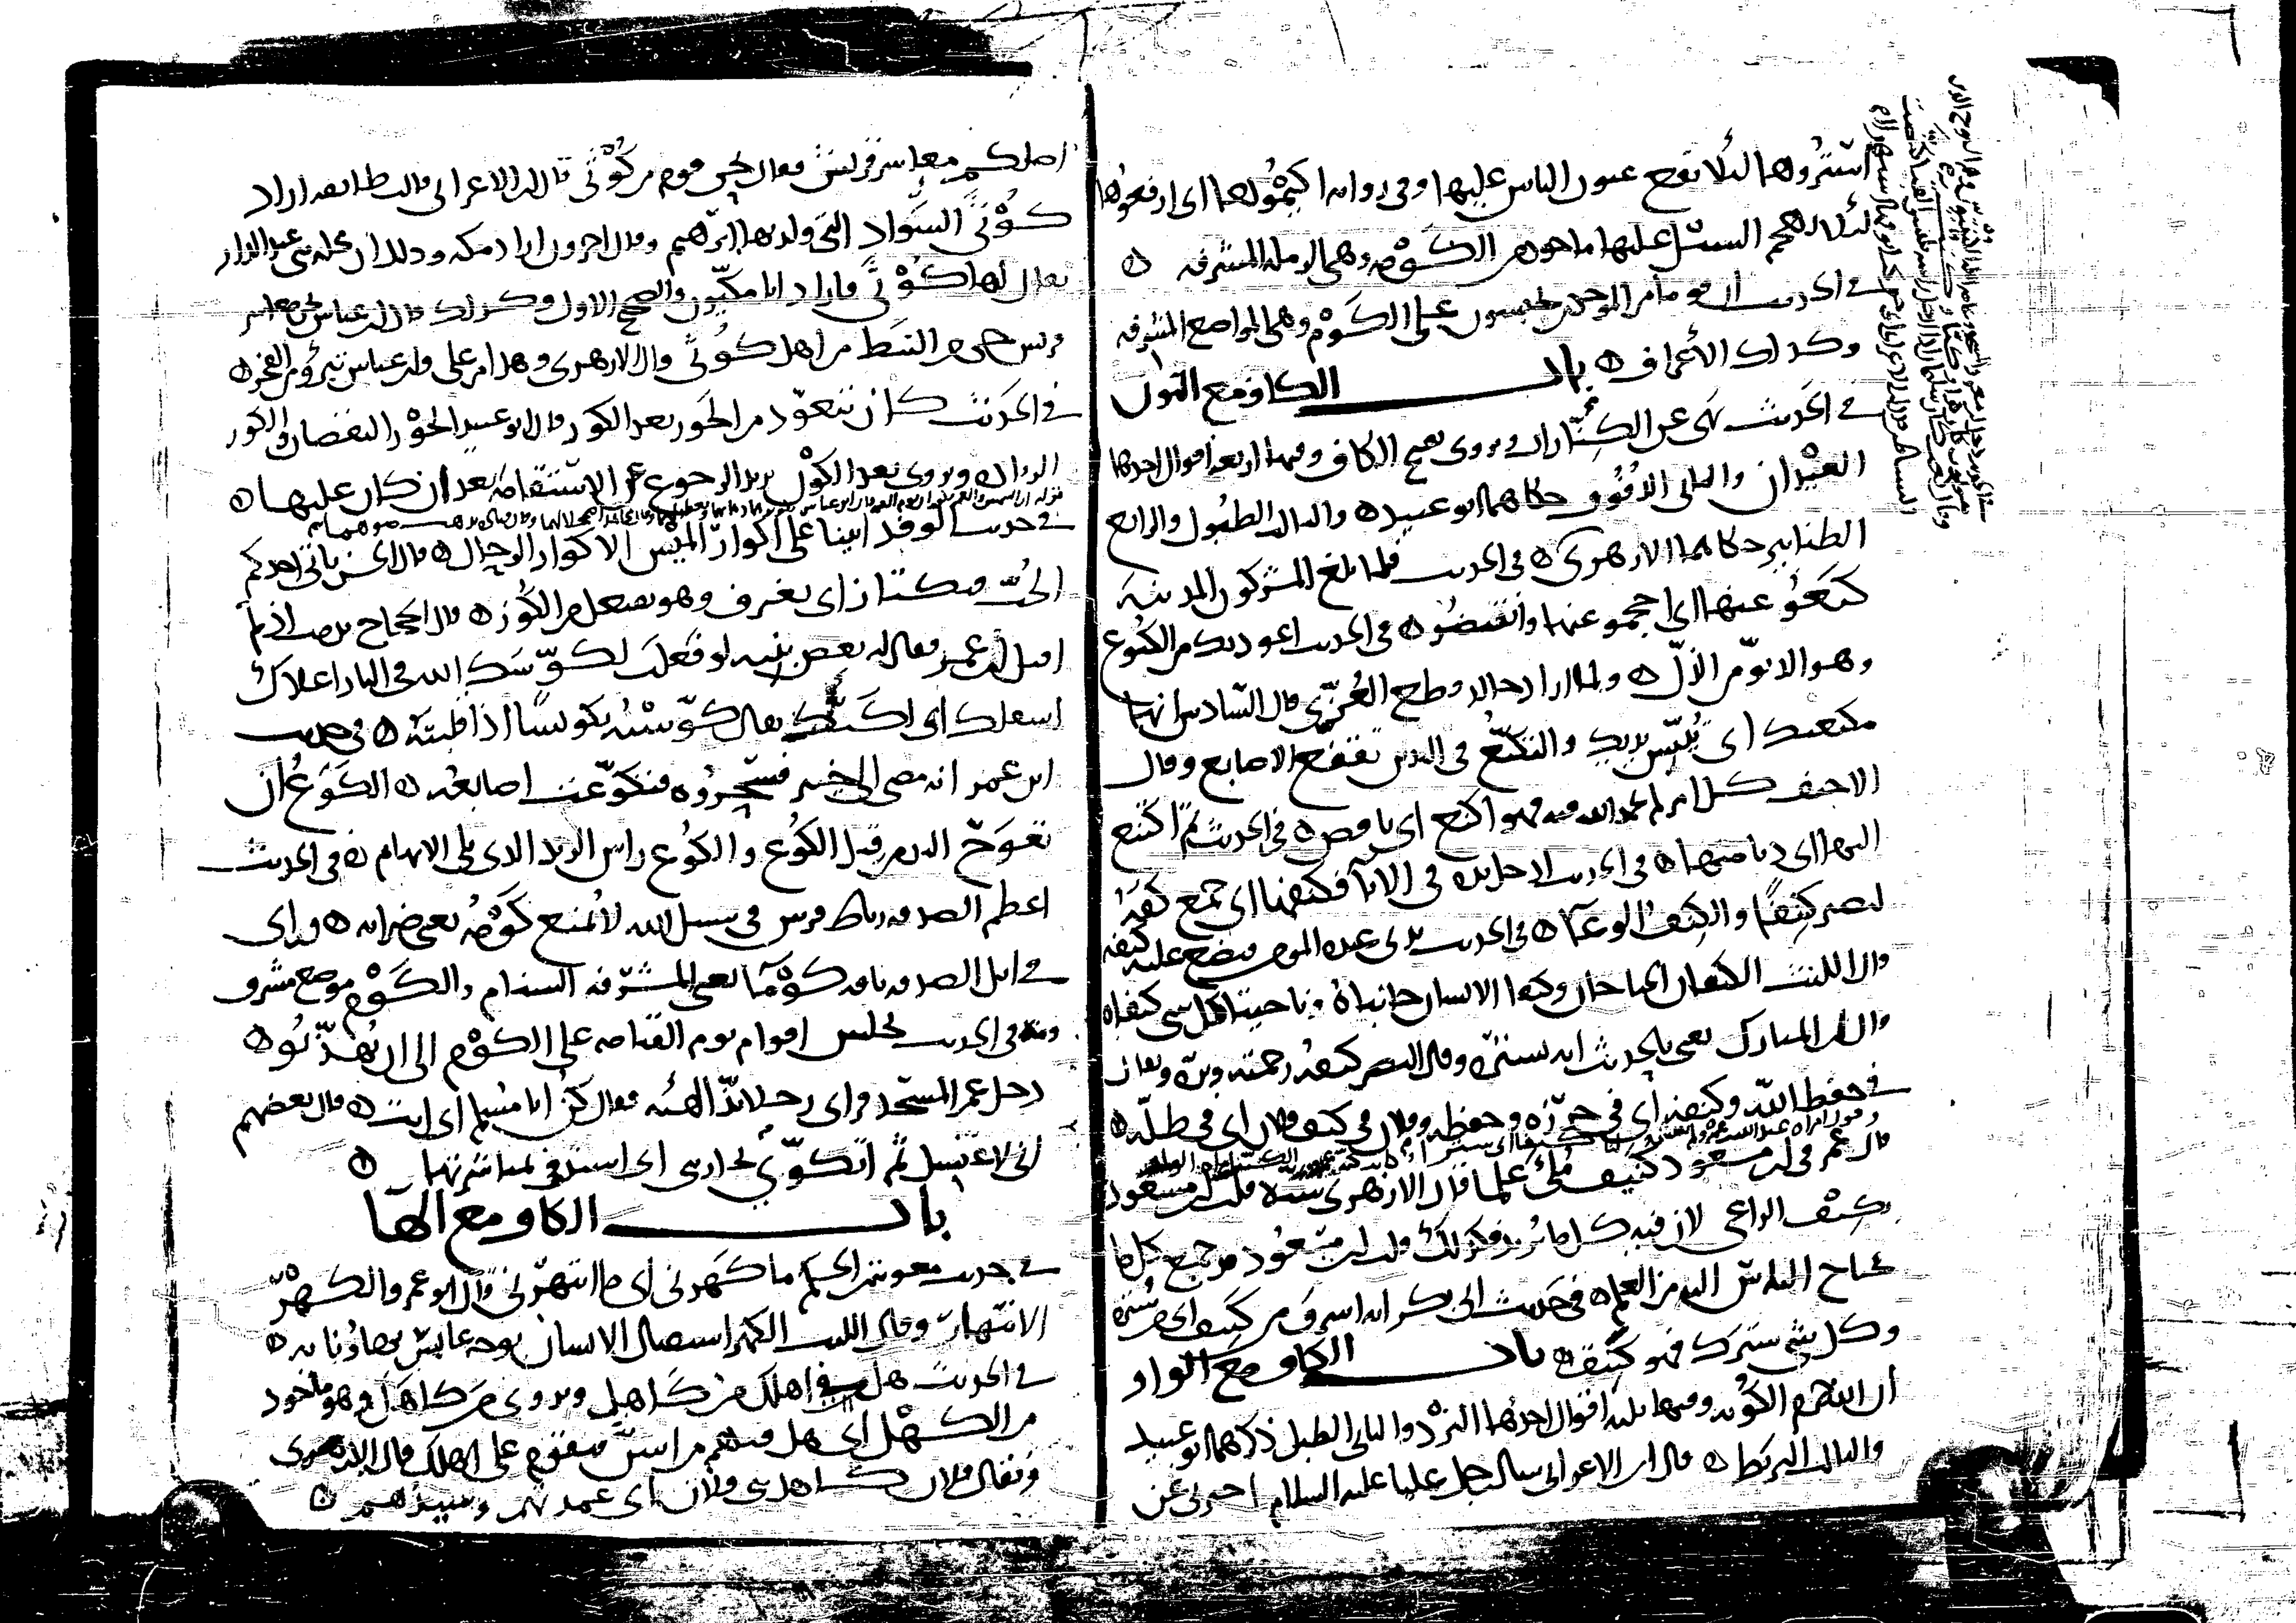 استروها لئلا تقع عيون الناس عليها وفي رواية اكيموها اى ارفعوها
لئلا يهجم السيل عليها ماخوذ من الكومة وهي الرملة المشرفة ه
في الحديث ان قوما من الموحدين يحبسون على الكوم وهي المواضع المشرفة
وكذلك الأعراف ه باب الكاف مع النون
في الحديث نهى عن الكنارات ويروى بفتح الكاف وفيها اربعة اقوال احدها
العيدان والثاني الدفوف حكاهما ابو عبيد ه والثالث الطبول والرابع
الطنابير حكاهما الازهري ه في الحديث فلما بلغ المشركون المدينة
كنعوا عنها اى احجموا عنها وانقبضوا ه في الحديث اعوذ بك من الكنوع
وهو الدنو من الذل ه ولما اراد خالد قطع العزى قال السادن انها
مكنعتك اى تيبس يديك والتكنع في اليدين تقفع الاصابع وقال
الاحنف كل امر لم يحمد الله فيه فهو اكنع اى ناقص ه في الحديث ثم اكتنع
اليها اى دنا منها ه في الحديث ادخل يده في الاناء فكنفها اى جمع كفه
لتصير كنفا والكنف الوعاء ه في الحديث يدنى عبده المومن فيضع عليه كنفه
قال الليث الكنفان الجناحان وكنفا الانسان جانباه وناحيتا كل شى كنفاه
قال ابن المبارك يعنى بالحديث انه يستره وقال النضر كنفه رحمته وبره ويقال
في حفظ الله وكنفه اى في حرزه وحفظه وفلان في كنف فلان اى في ظله ه
قال عمر في ابن مسعود كنيف ملئ علما قال الازهرى شبه قلب ابن مسعود
بكنف الراعى لان فيه كل ما يريد فكذلك قلب ابن مسعود قد جمع كل ما
يحتاج الناس اليه من العلم ه في حديث ابى بكر انه اشرف من كنيف اى سترة
وكل شى سترك فهو كنيف ه باب الكاف مع الواو
ان الله حرم الكوبة وفيها ثلثة اقوال احدها النرد والثانى الطبل ذكرهما ابو عبيد
والثالث البربط ه قال ابن الاعرابى سال رجل عليا عليه السلام اخبرنى عن
اصلكم معاشر قريش فقال نحن قوم من كوثى قال ابن الاعرابى قالت طائفة اراد
كوثى السواد التى ولد بها ابرهيم وقال اخرون اراد مكة وذلك ان محلة بنى عبد الدار
يقال لها كوثى فاراد انا مكيون والصحيح الاول وكذلك قال ابن عباس نحن معاشر
قريش حى من النبط من اهل كوثى قال الازهرى وهذا من على وابن عباس تبرؤ من الفخر ه
في الحديث كان يتعوذ من الحور بعد الكور قال ابو عبيد الحور النقصان والكور
الزيادة ويروى بعد الكون يريد الرجوع عن الاستقامة بعد ان كان عليها ه
في حديث الوفد اتينا على اكوار الميس الاكوار الرحال ه قال الحسن ياتى احدكم
الحب فيكتاز اى يغرف وهو يفتعل من الكوز ه قال الحجاج ندمت اذ لم
اقتل ابن عمر فقال له بعض بنيه لو فعلت لكوسك الله في النار اعلاك
اسفلك اى لكبك يقال كوسته تكويسا اذا قلبته ه في حديث
ابن عمر انه مضى الى خيبر فسحروه فتكوعت اصابعه ه الكوع ان
تعوج اليد من قبل الكوع والكوع راس الزند الذى يلى الابهام ه في الحديث
اعظم الصدقة رباط فرس في سبيل الله لا يمنع كومه يعنى ضرابه ه وراى
في ابل الصدقة ناقة كوماء يعنى المشرفة السنام والكوم موضع مشرف
ومنه في الحديث يحبس اقوام يوم القيامة على الكوم الى ان يهذبوا ه
دخل عمر المسجد فراى رجلا بذ الهيئة فقال كن ابا مسلم اى انت ه قال بعضهم
انى لاغتسل ثم اتكوى بجاريتى اى استدفئ بمباشرتها ه
باب الكاف مع الهاء
في حديث معوية بن الحكم ما كهرنى اى ما انتهرنى قال ابو عمرو الكهر
الانتهار وقال الليث الكهر استقبال الانسان بوجه عابس تهاونا به ه
في الحديث هل في اهلك من كاهل ويروى من كاهل وهو ماخوذ
من الكهل اى هل فيهم من اسن فيقوم على اهلك قال الازهرى
ويقال فلان كاهل بنى فلان اى عمدتهم وسيدهم ه